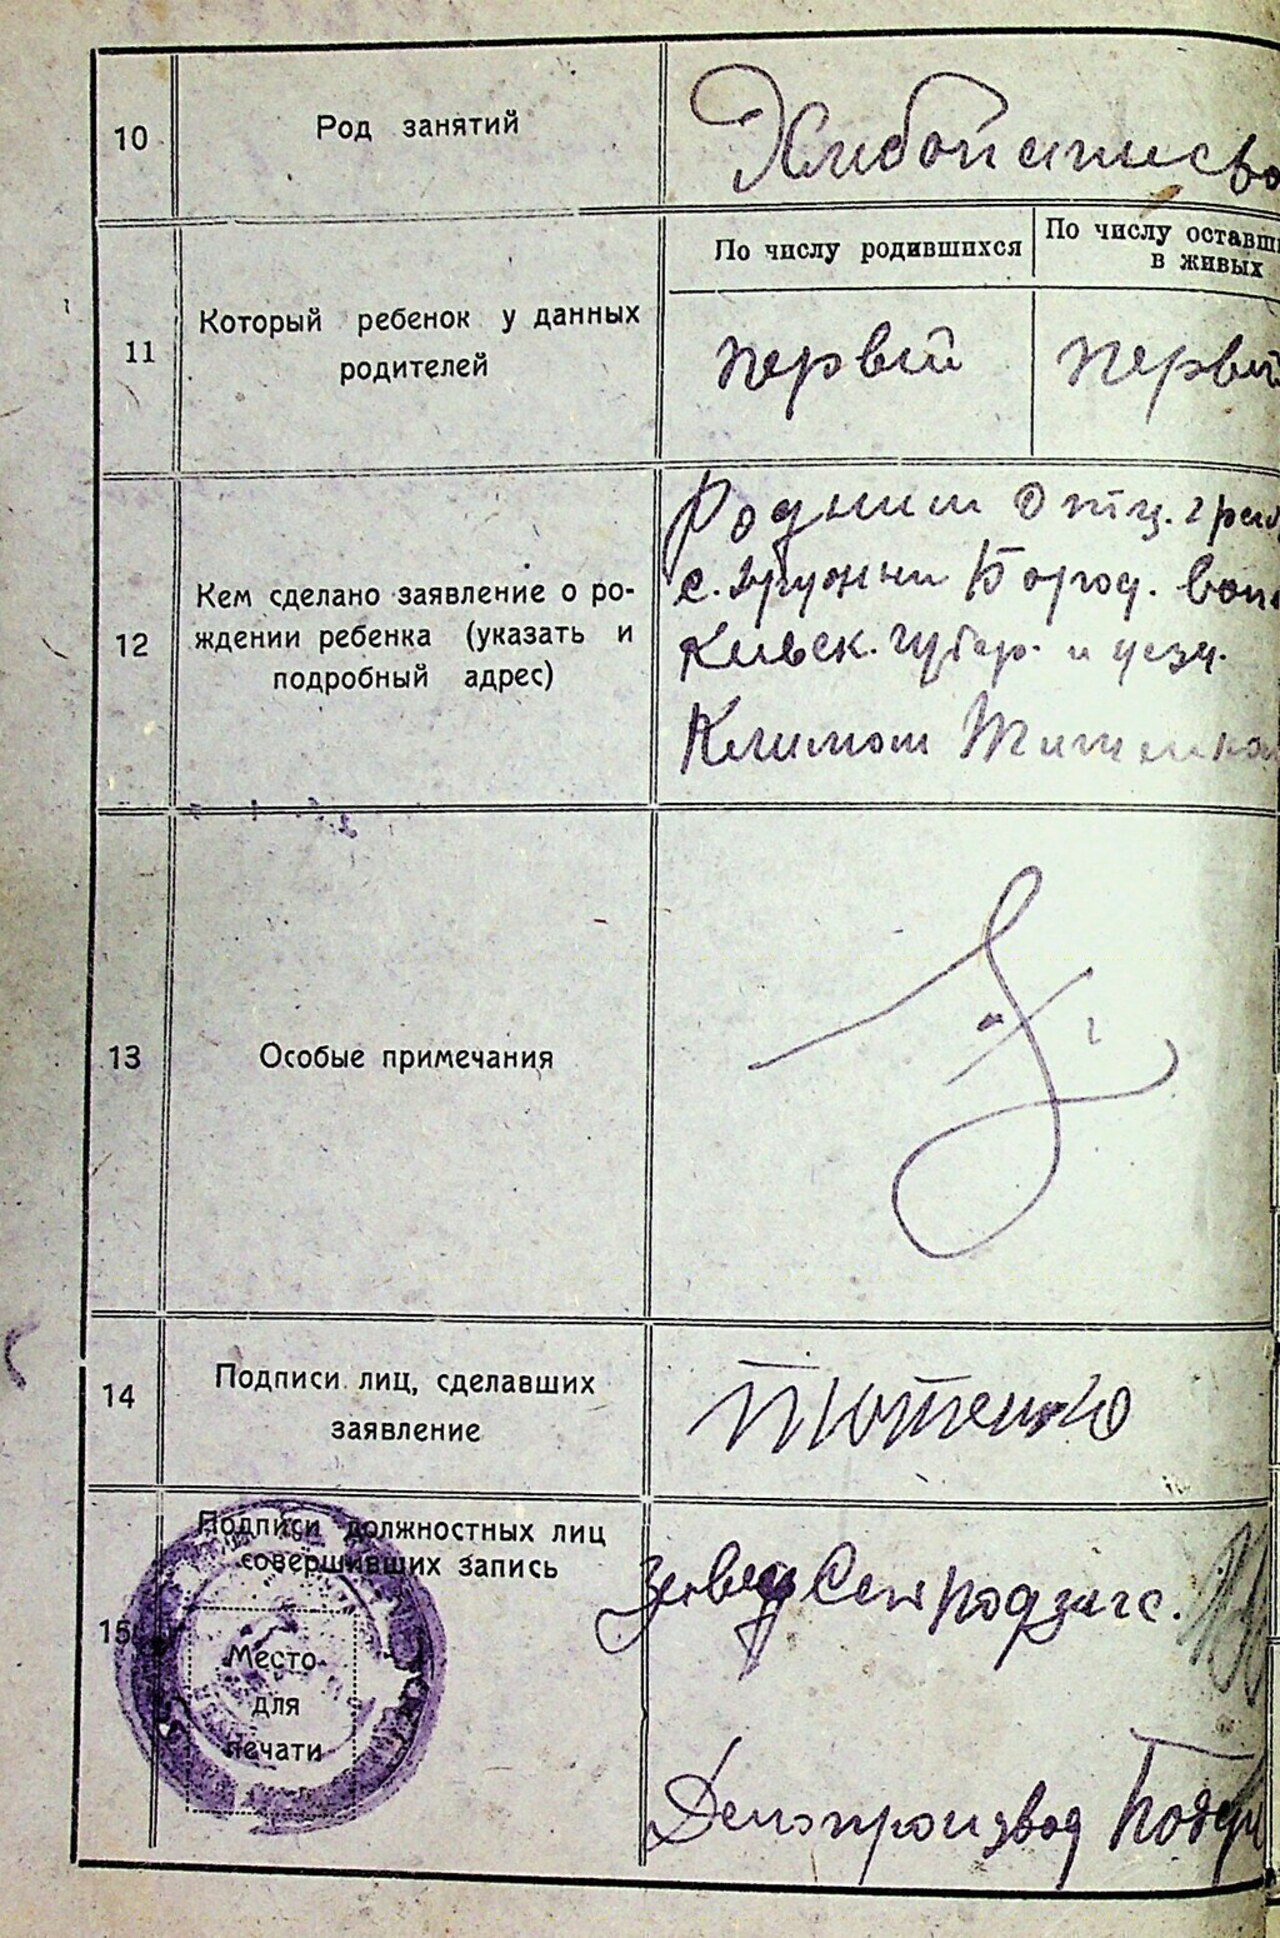 10
Род занятий
Хлибопашево
По числу родившихся
По числу оставши
в живых
11
Который ребенок у данных
родителей
первый
первый
12
Кем сделано заявление о ро-
ждении ребенка (указать и
подробный адрес)
Родним Отц.
с. Бород.
Киевск. губер. и уезд.
Климом
13
Особые примечания
14
Подписи лиц, сделавших
заявление
Тютенко
15
Подписи должностных лиц
совершивших запись
Место
для
печати
Завед Сель подзагс.
Делопроизвод